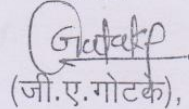 (जी.ए.गोटके).